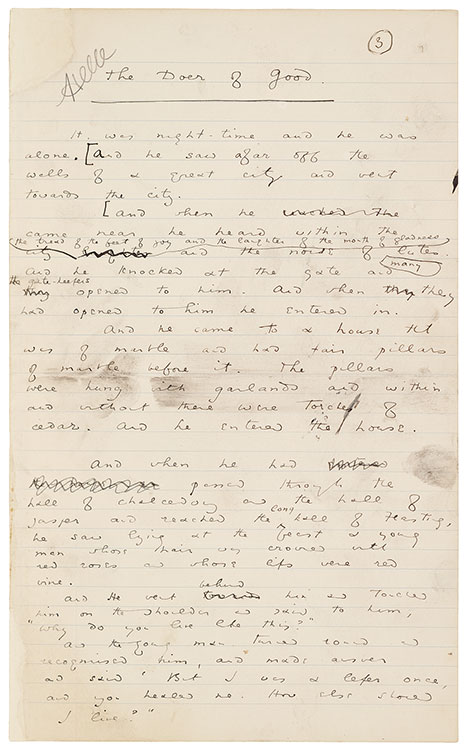 3
The Doer of Good.
It was night-time and he was
alone. [And he saw afar off the
walls of a great city and went
towards the city.
[And when he reached the
came near he heard within the
the tread of the feet of joy and the laughter of the mouth of gladness
city and the noise of lutes.
many
And he knocked at the gate and
the gate-keepers
they opened to him. And when they they
had opened to him he entered in.
And he came to a house that
was of marble and had fair pillars
of marble before it. The pillars
were hung with garlands and within
and without there were torches of
cedar. And he entered the house.
And when he had
passed through the
hall of chalcedony and the hall of
jasper and reached the long hall of feasting,
he saw lying at the feast a young
man whose hair was crowned with
red roses and whose lips were red
wine.
behind
And He went him and touched
him on the shoulder and said to him,
"Why do you live like this?"
And the young man turned round and
recognised him, and made answer
and said "But I was a leper once,
and you healed me. How else should
I live?"